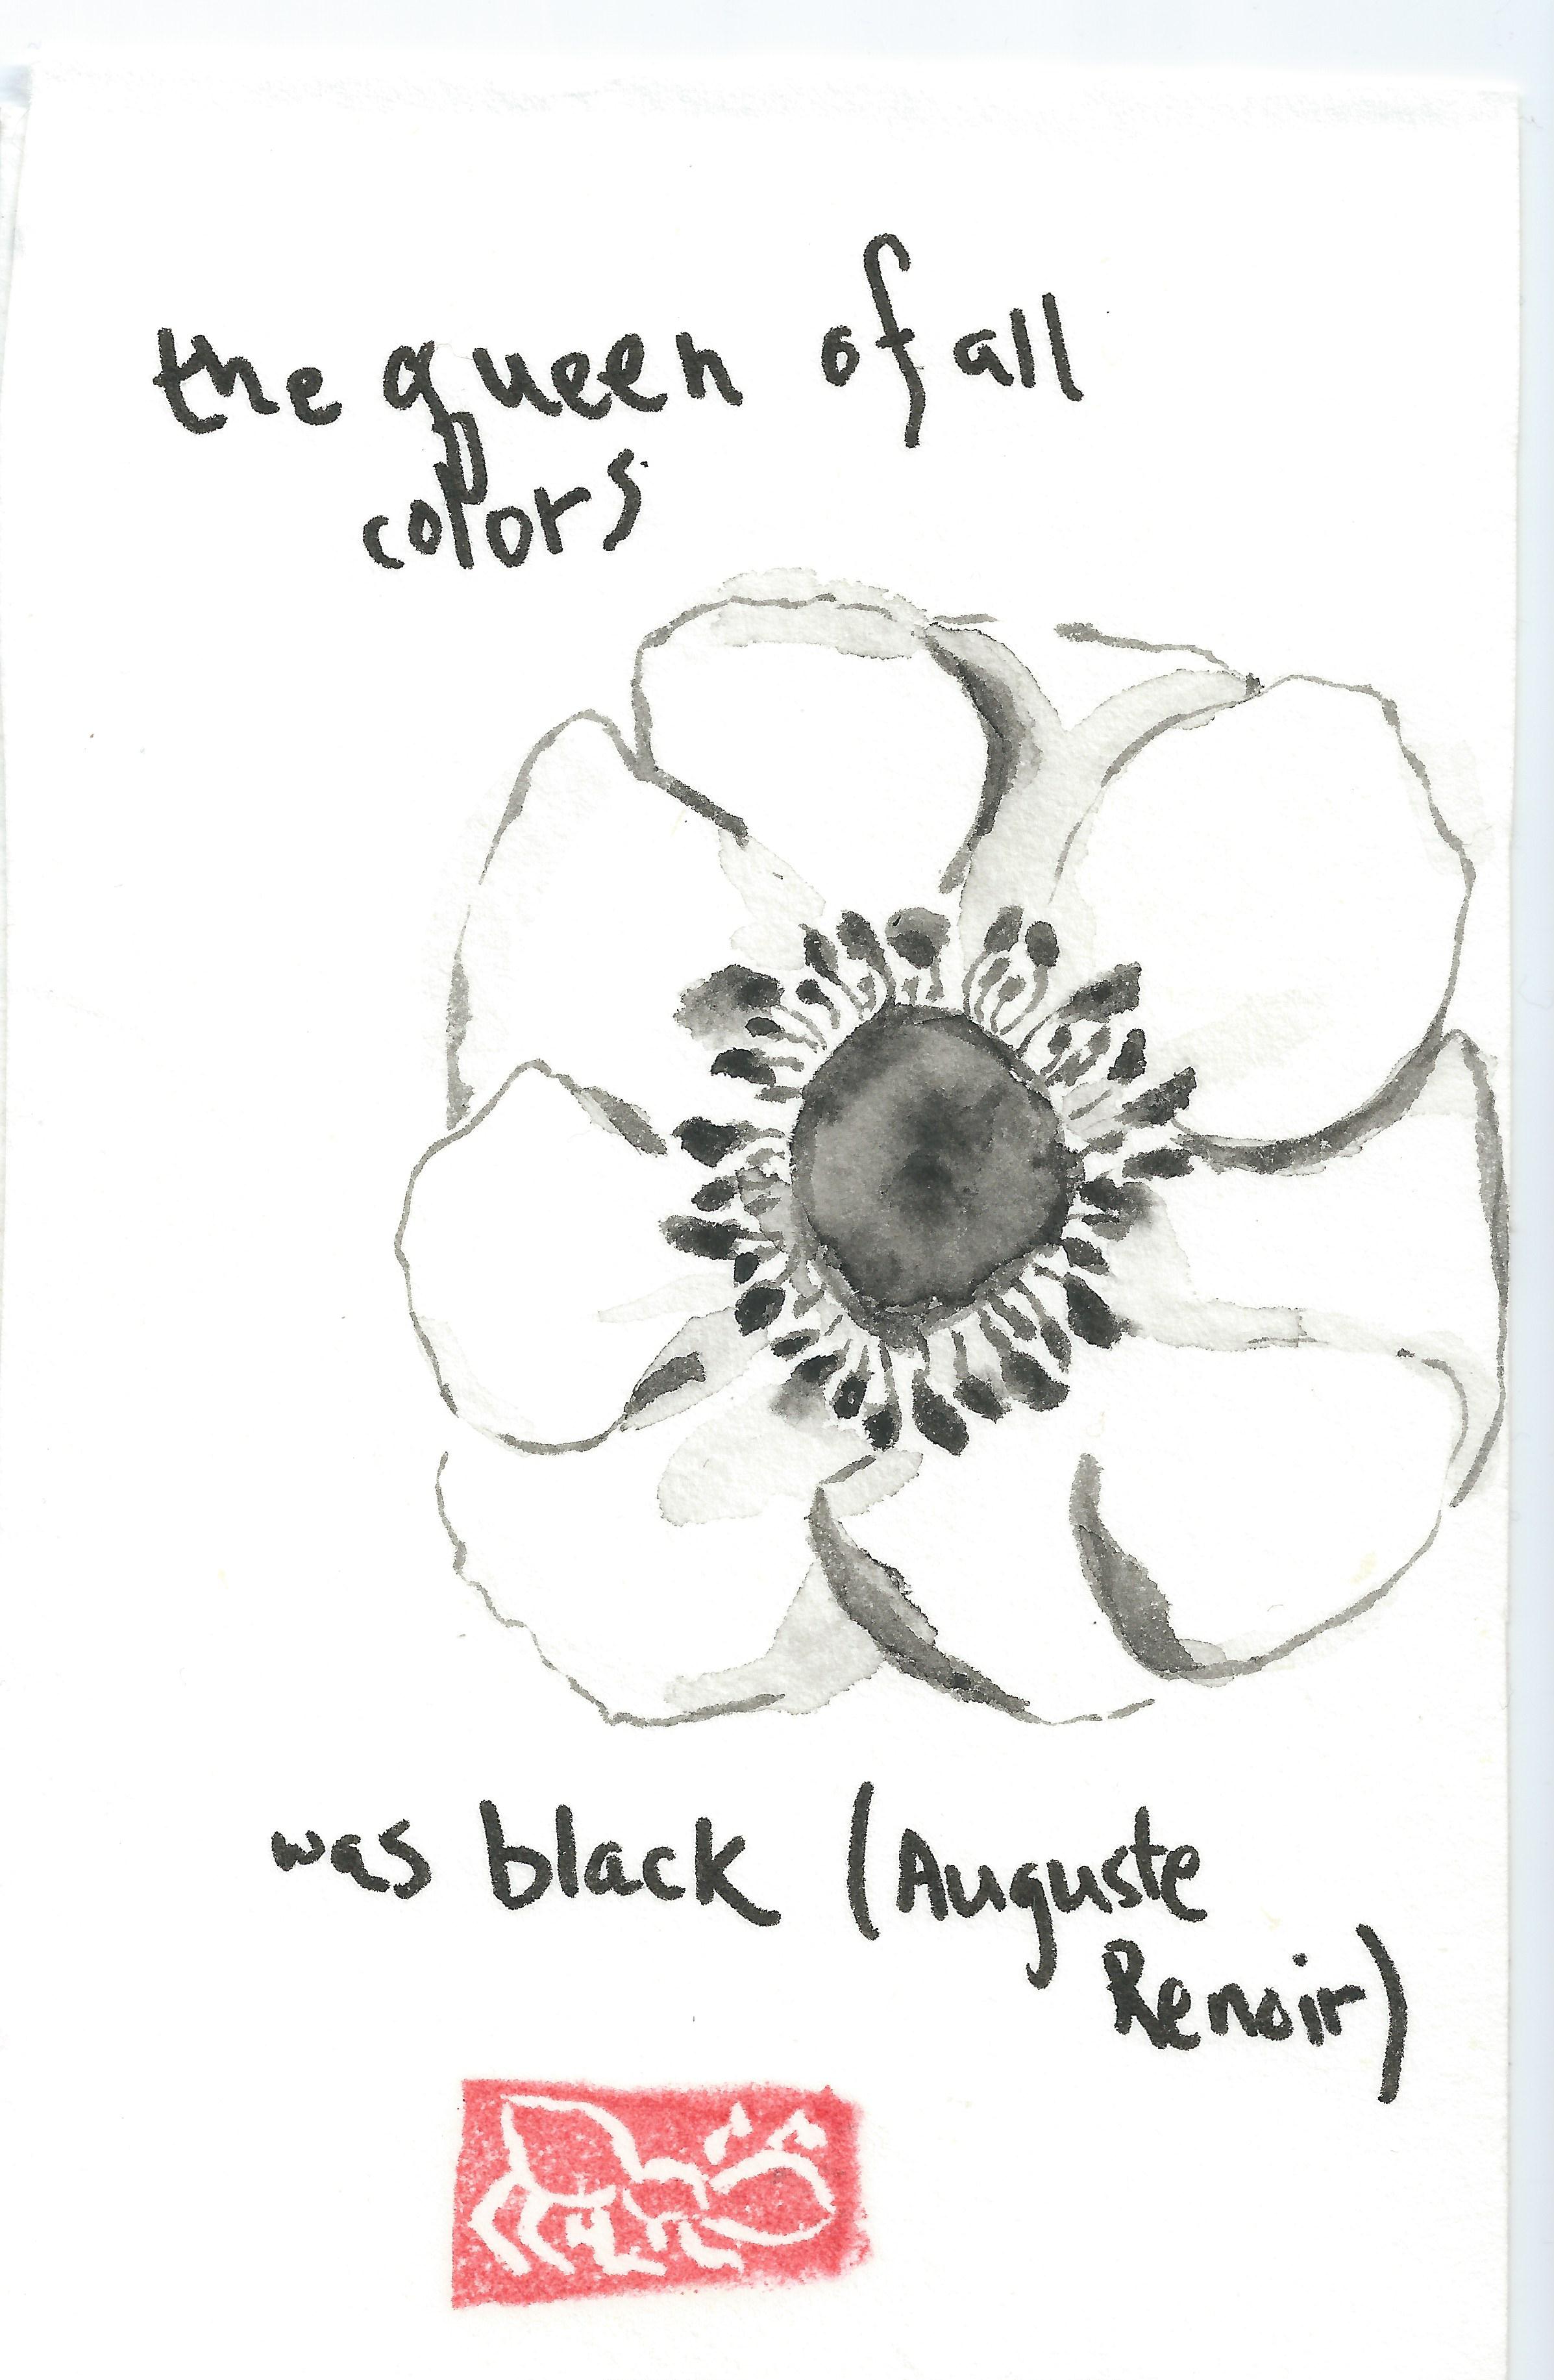 the queen of all
colors
was black (Auguste
Renoir)